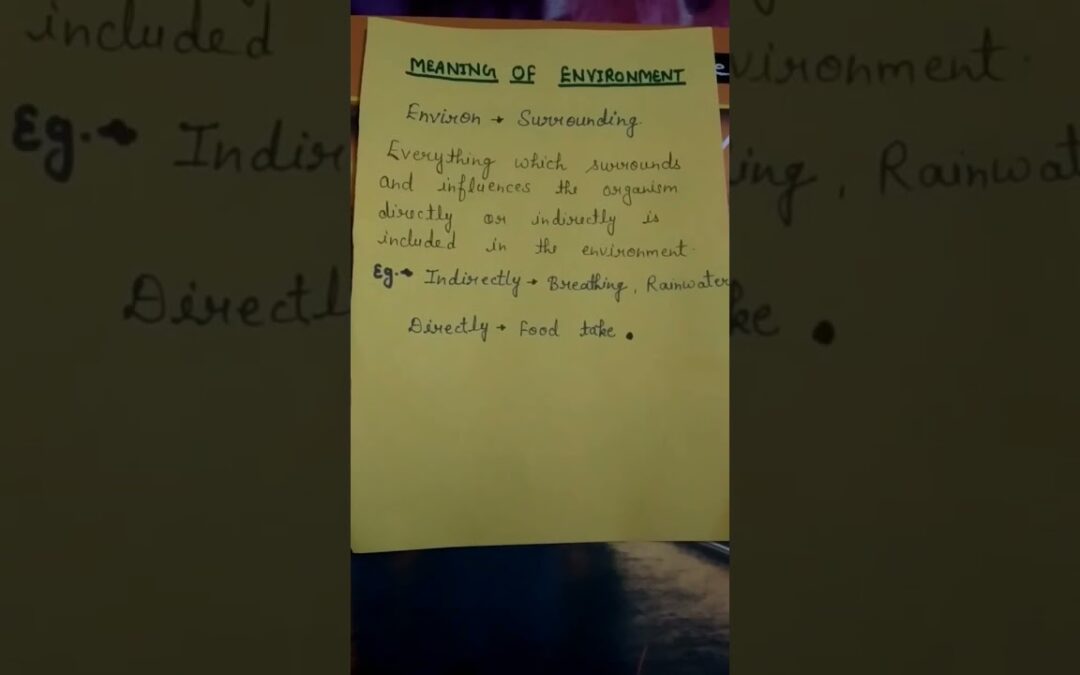 MEANING OF ENVIRONMENT
Environ → Surrounding.
Everything which surrounds
and influences the organism
directly or indirectly is
included in the environment.
Eg. → Indirectly → Breathing, Rainwater
Directly → Food take.